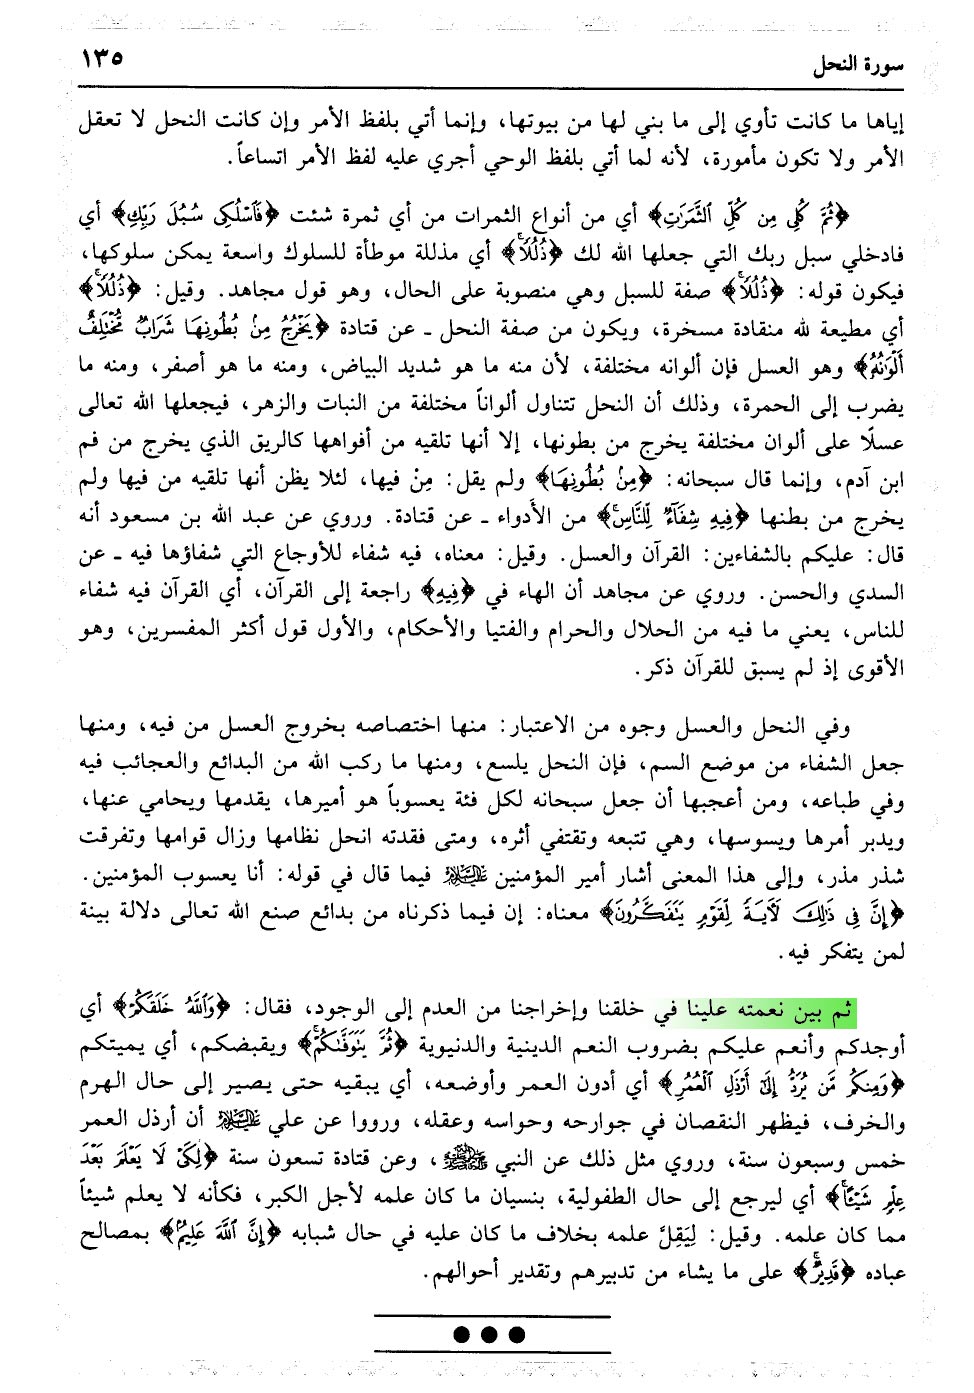 سورة النحل
١٣٥
إياها ما كانت تأوي إلى ما بني لها من بيوتها، وإنما أتي بلفظ الأمر وإن كانت النحل لا تعقل
الأمر ولا تكون مأمورة، لأنه لما أتي بلفظ الوحي أجري عليه لفظ الأمر اتساعاً.
﴿ثُمَّ كُلِي مِن كُلِّ ٱلثَّمَرَٰتِ﴾ أي من أنواع الثمرات من أي ثمرة شئت ﴿فَٱسْلُكِي سُبُلَ رَبِّكِ﴾ أي
فادخلي سبل ربك التي جعلها الله لك ﴿ذُلُلًاۚ﴾ أي مذللة موطأة للسلوك واسعة يمكن سلوكها،
فيكون قوله: ﴿ذُلُلًاۚ﴾ صفة للسبل وهي منصوبة على الحال، وهو قول مجاهد. وقيل: ﴿ذُلُلًاۚ﴾
أي مطيعة لله منقادة مسخرة، ويكون من صفة النحل ـ عن قتادة ﴿يَخْرُجُ مِنۢ بُطُونِهَا شَرَابٌ مُّخْتَلِفٌ
أَلْوَٰنُهُۥ﴾ وهو العسل فإن ألوانه مختلفة، لأن منه ما هو شديد البياض، ومنه ما هو أصفر، ومنه ما
يضرب إلى الحمرة، وذلك أن النحل تتناول ألواناً مختلفة من النبات والزهر، فيجعلها الله تعالى
عسلًا على ألوان مختلفة يخرج من بطونها، إلا أنها تلقيه من أفواهها كالريق الذي يخرج من فم
ابن آدم، وإنما قال سبحانه: ﴿مِنۢ بُطُونِهَا﴾ ولم يقل: مِنْ فيها، لئلا يظن أنها تلقيه من فيها ولم
يخرج من بطنها ﴿فِيهِ شِفَآءٌ لِّلنَّاسِۚ﴾ من الأدواء ـ عن قتادة. وروي عن عبد الله بن مسعود أنه
قال: عليكم بالشفاءين: القرآن والعسل. وقيل: معناه، فيه شفاء للأوجاع التي شفاؤها فيه ـ عن
السدي والحسن. وروي عن مجاهد أن الهاء في ﴿فِيهِ﴾ راجعة إلى القرآن، أي القرآن فيه شفاء
للناس، يعني ما فيه من الحلال والحرام والفتيا والأحكام، والأول قول أكثر المفسرين، وهو
الأقوى إذ لم يسبق للقرآن ذكر.
وفي النحل والعسل وجوه من الاعتبار: منها اختصاصه بخروج العسل من فيه، ومنها
جعل الشفاء من موضع السم، فإن النحل يلسع، ومنها ما ركب الله من البدائع والعجائب فيه
وفي طباعه، ومن أعجبها أن جعل سبحانه لكل فئة يعسوباً هو أميرها، يقدمها ويحامي عنها،
ويدبر أمرها ويسوسها، وهي تتبعه وتقتفي أثره، ومتى فقدته انحل نظامها وزال قوامها وتفرقت
شذر مذر، وإلى هذا المعنى أشار أمير المؤمنين عليه السلام فيما قال في قوله: أنا يعسوب المؤمنين.
﴿إِنَّ فِي ذَٰلِكَ لَآيَةً لِّقَوْمٍ يَتَفَكَّرُونَ﴾ معناه: إن فيما ذكرناه من بدائع صنع الله تعالى دلالة بينة
لمن يتفكر فيه.
ثم بين نعمته علينا في خلقنا وإخراجنا من العدم إلى الوجود، فقال: ﴿وَٱللَّهُ خَلَقَكُمْ﴾ أي
أوجدكم وأنعم عليكم بضروب النعم الدينية والدنيوية ﴿ثُمَّ يَتَوَفَّىٰكُمْۚ﴾ ويقبضكم، أي يميتكم
﴿وَمِنكُم مَّن يُرَدُّ إِلَىٰٓ أَرْذَلِ ٱلْعُمُرِ﴾ أي أدون العمر وأوضعه، أي يبقيه حتى يصير إلى حال الهرم
والخرف، فيظهر النقصان في جوارحه وحواسه وعقله، ورووا عن علي عليه السلام أن أرذل العمر
خمس وسبعون سنة، وروي مثل ذلك عن النبي ﷺ، وعن قتادة تسعون سنة ﴿لِكَيْ لَا يَعْلَمَ بَعْدَ
عِلْمٍ شَيْـًٔاۚ﴾ أي ليرجع إلى حال الطفولية، بنسيان ما كان علمه لأجل الكبر، فكأنه لا يعلم شيئاً
مما كان علمه. وقيل: لِيَقِلَّ علمه بخلاف ما كان عليه في حال شبابه ﴿إِنَّ ٱللَّهَ عَلِيمٌ﴾ بمصالح
عباده ﴿قَدِيرٌۚ﴾ على ما يشاء من تدبيرهم وتقدير أحوالهم.